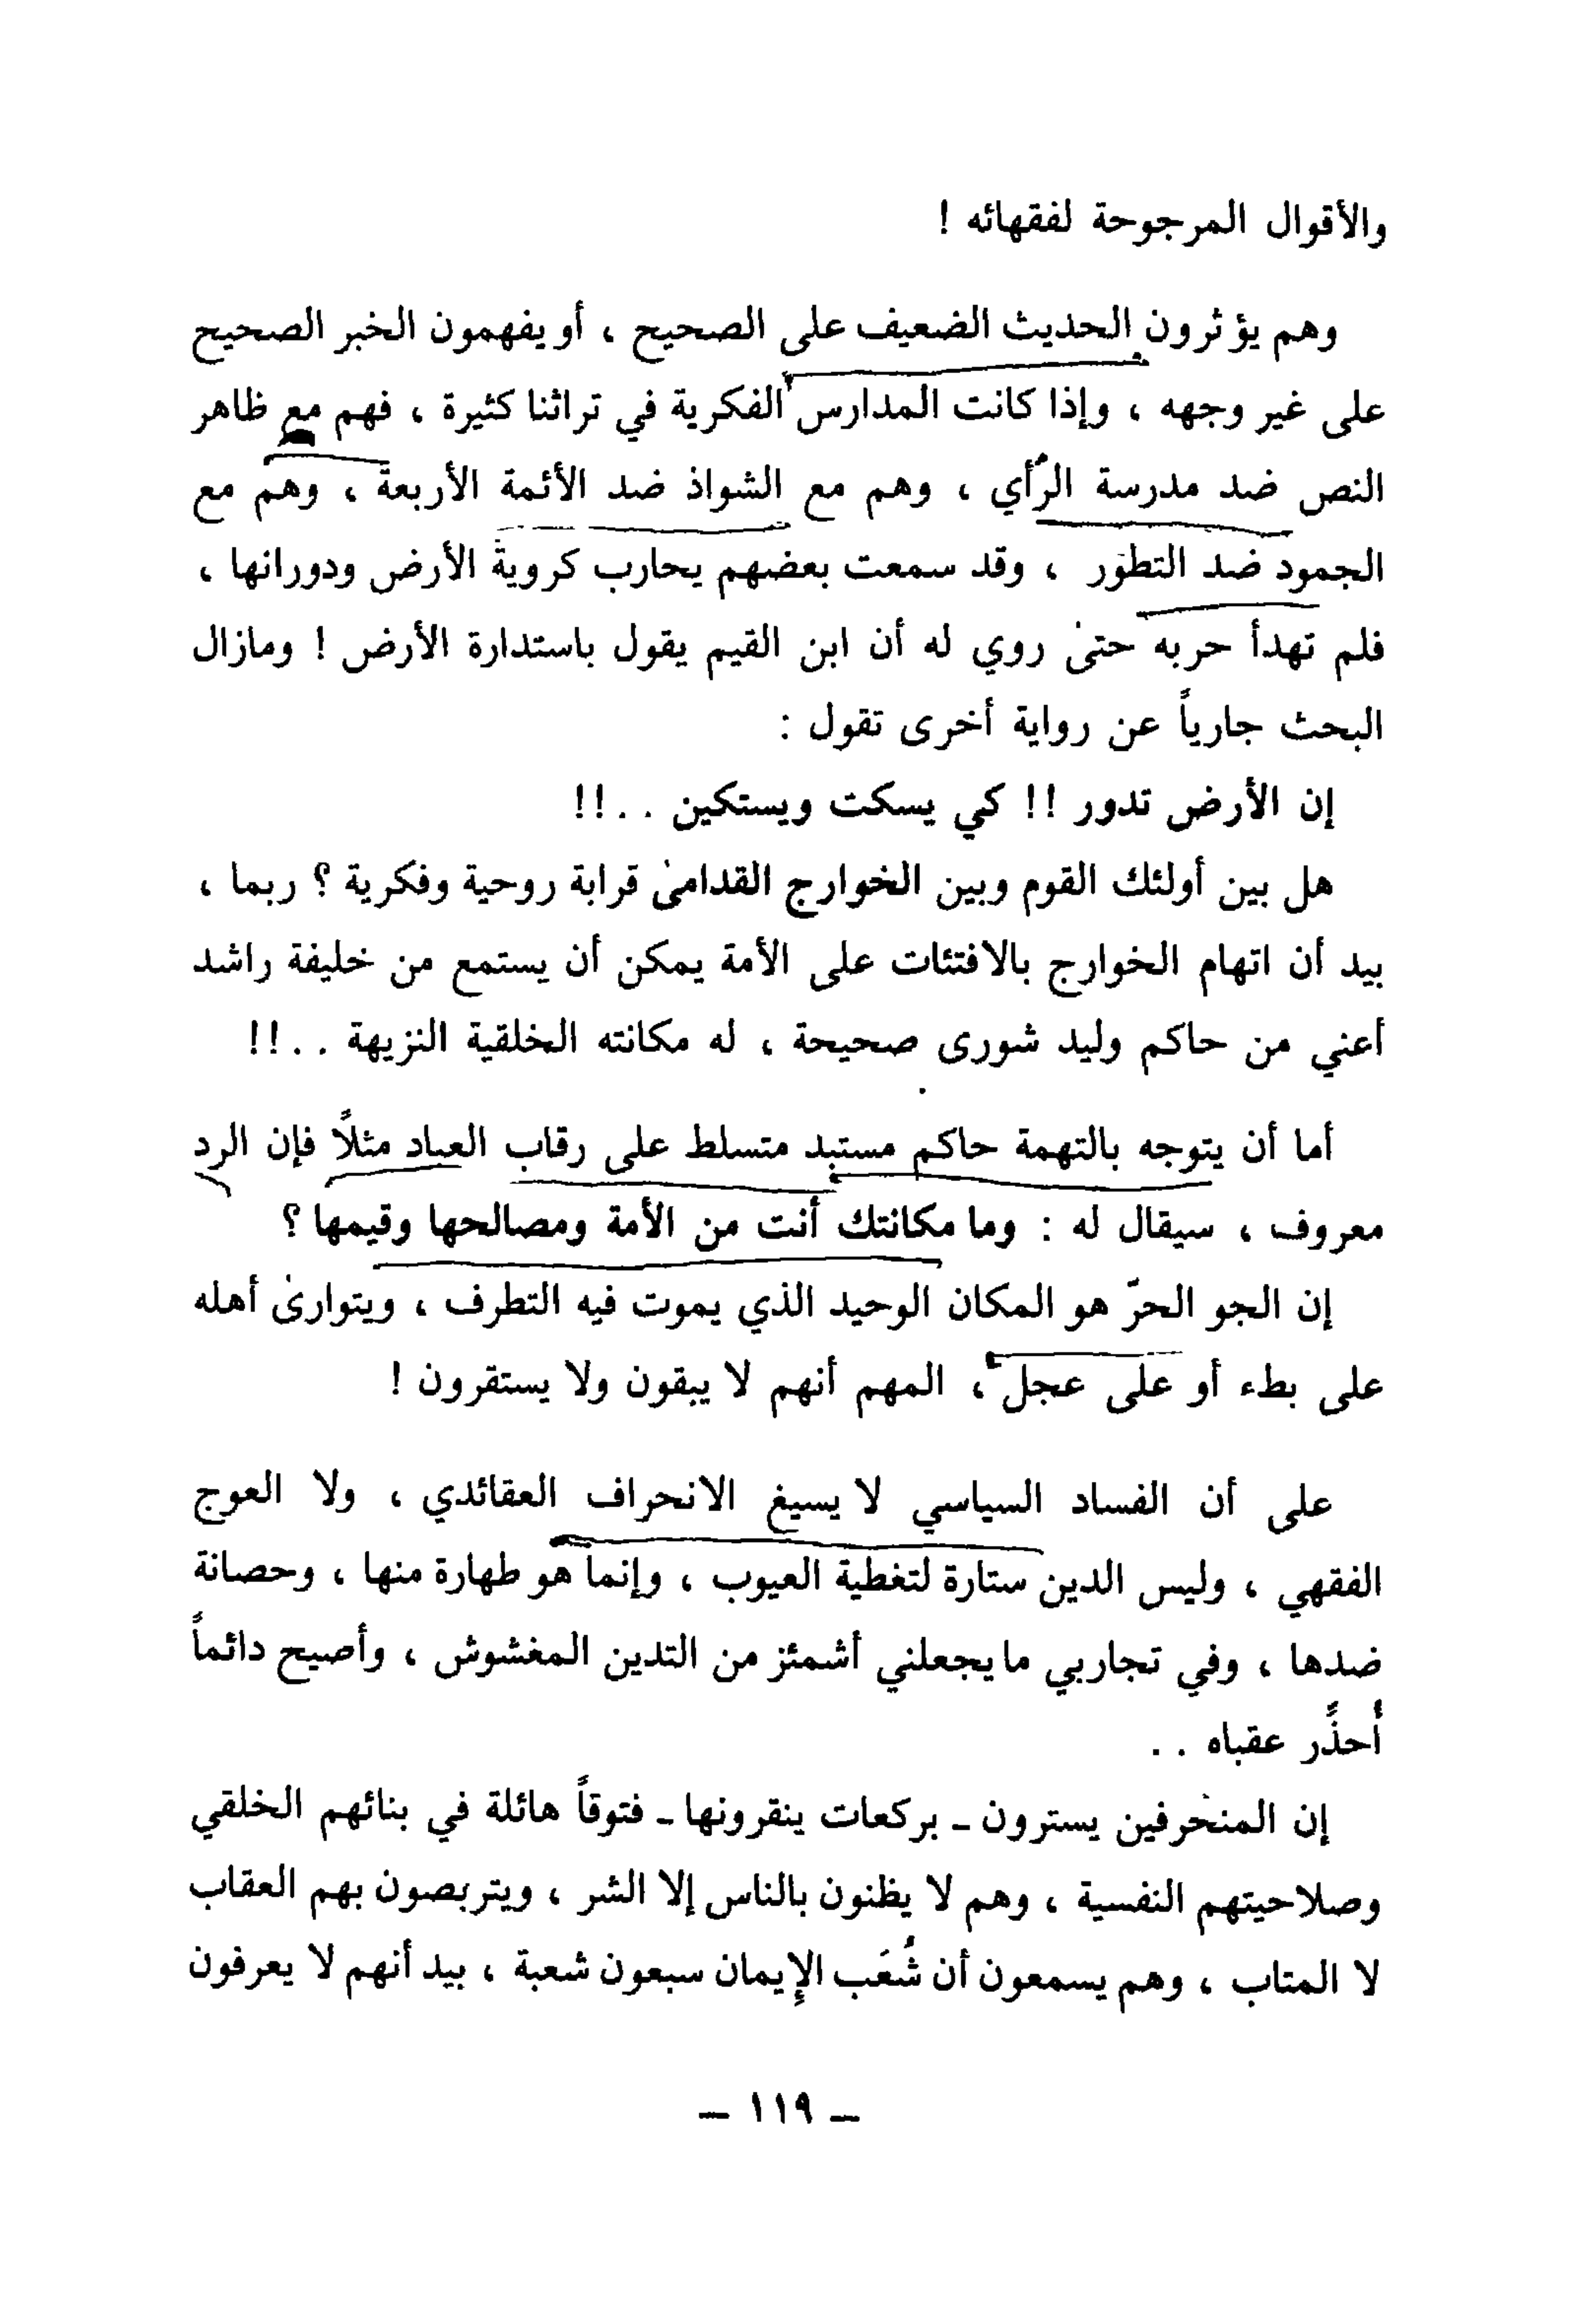 والأقوال المرجوحة لفقهائه !
وهم يؤثرون الحديث الضعيف على الصحيح ، أو يفهمون الخبر الصحيح
على غير وجهه ، وإذا كانت المدارس الفكرية في تراثنا كثيرة ، فهم مع ظاهر
النص ضد مدرسة الرأي ، وهم مع الشواذ ضد الأئمة الأربعة ، وهم مع
الجمود ضد التطور ، وقد سمعت بعضهم يحارب كروية الأرض ودورانها ،
فلم تهدأ حربه حتىٰ روي له أن ابن القيم يقول باستدارة الأرض ! ومازال
البحث جارياً عن رواية أخرى تقول :
إن الأرض تدور !! كي يسكت ويستكين . . !!
هل بين أولئك القوم وبين الخوارج القدامىٰ قرابة روحية وفكرية ؟ ربما ،
بيد أن اتهام الخوارج بالافتئات على الأمة يمكن أن يستمع من خليفة راشد
أعني من حاكم وليد شورى صحيحة ، له مكانته الخلقية النزيهة . . !!
أما أن يتوجه بالتهمة حاكم مستبد متسلط على رقاب العباد مثلاً فإن الرد
معروف ، سيقال له : وما مكانتك أنت من الأمة ومصالحها وقيمها ؟
إن الجو الحرّ هو المكان الوحيد الذي يموت فيه التطرف ، ويتوارىٰ أهله
على بطء أو على عجل ، المهم أنهم لا يبقون ولا يستقرون !
على أن الفساد السياسي لا يسيغ الانحراف العقائدي ، ولا العوج
الفقهي ، وليس الدين ستارة لتغطية العيوب ، وإنما هو طهارة منها ، وحصانة
ضدها ، وفي تجاربي ما يجعلني أشمئز من التدين المغشوش ، وأصيح دائماً
أُحذِّر عقباه . .
إن المنحرفين يسترون ـ بركعات ينقرونها ـ فتوقاً هائلة في بنائهم الخلقي
وصلاحيتهم النفسية ، وهم لا يظنون بالناس إلا الشر ، ويتربصون بهم العقاب
لا المتاب ، وهم يسمعون أن شُعَب الإِيمان سبعون شعبة ، بيد أنهم لا يعرفون
– ١١٩ –